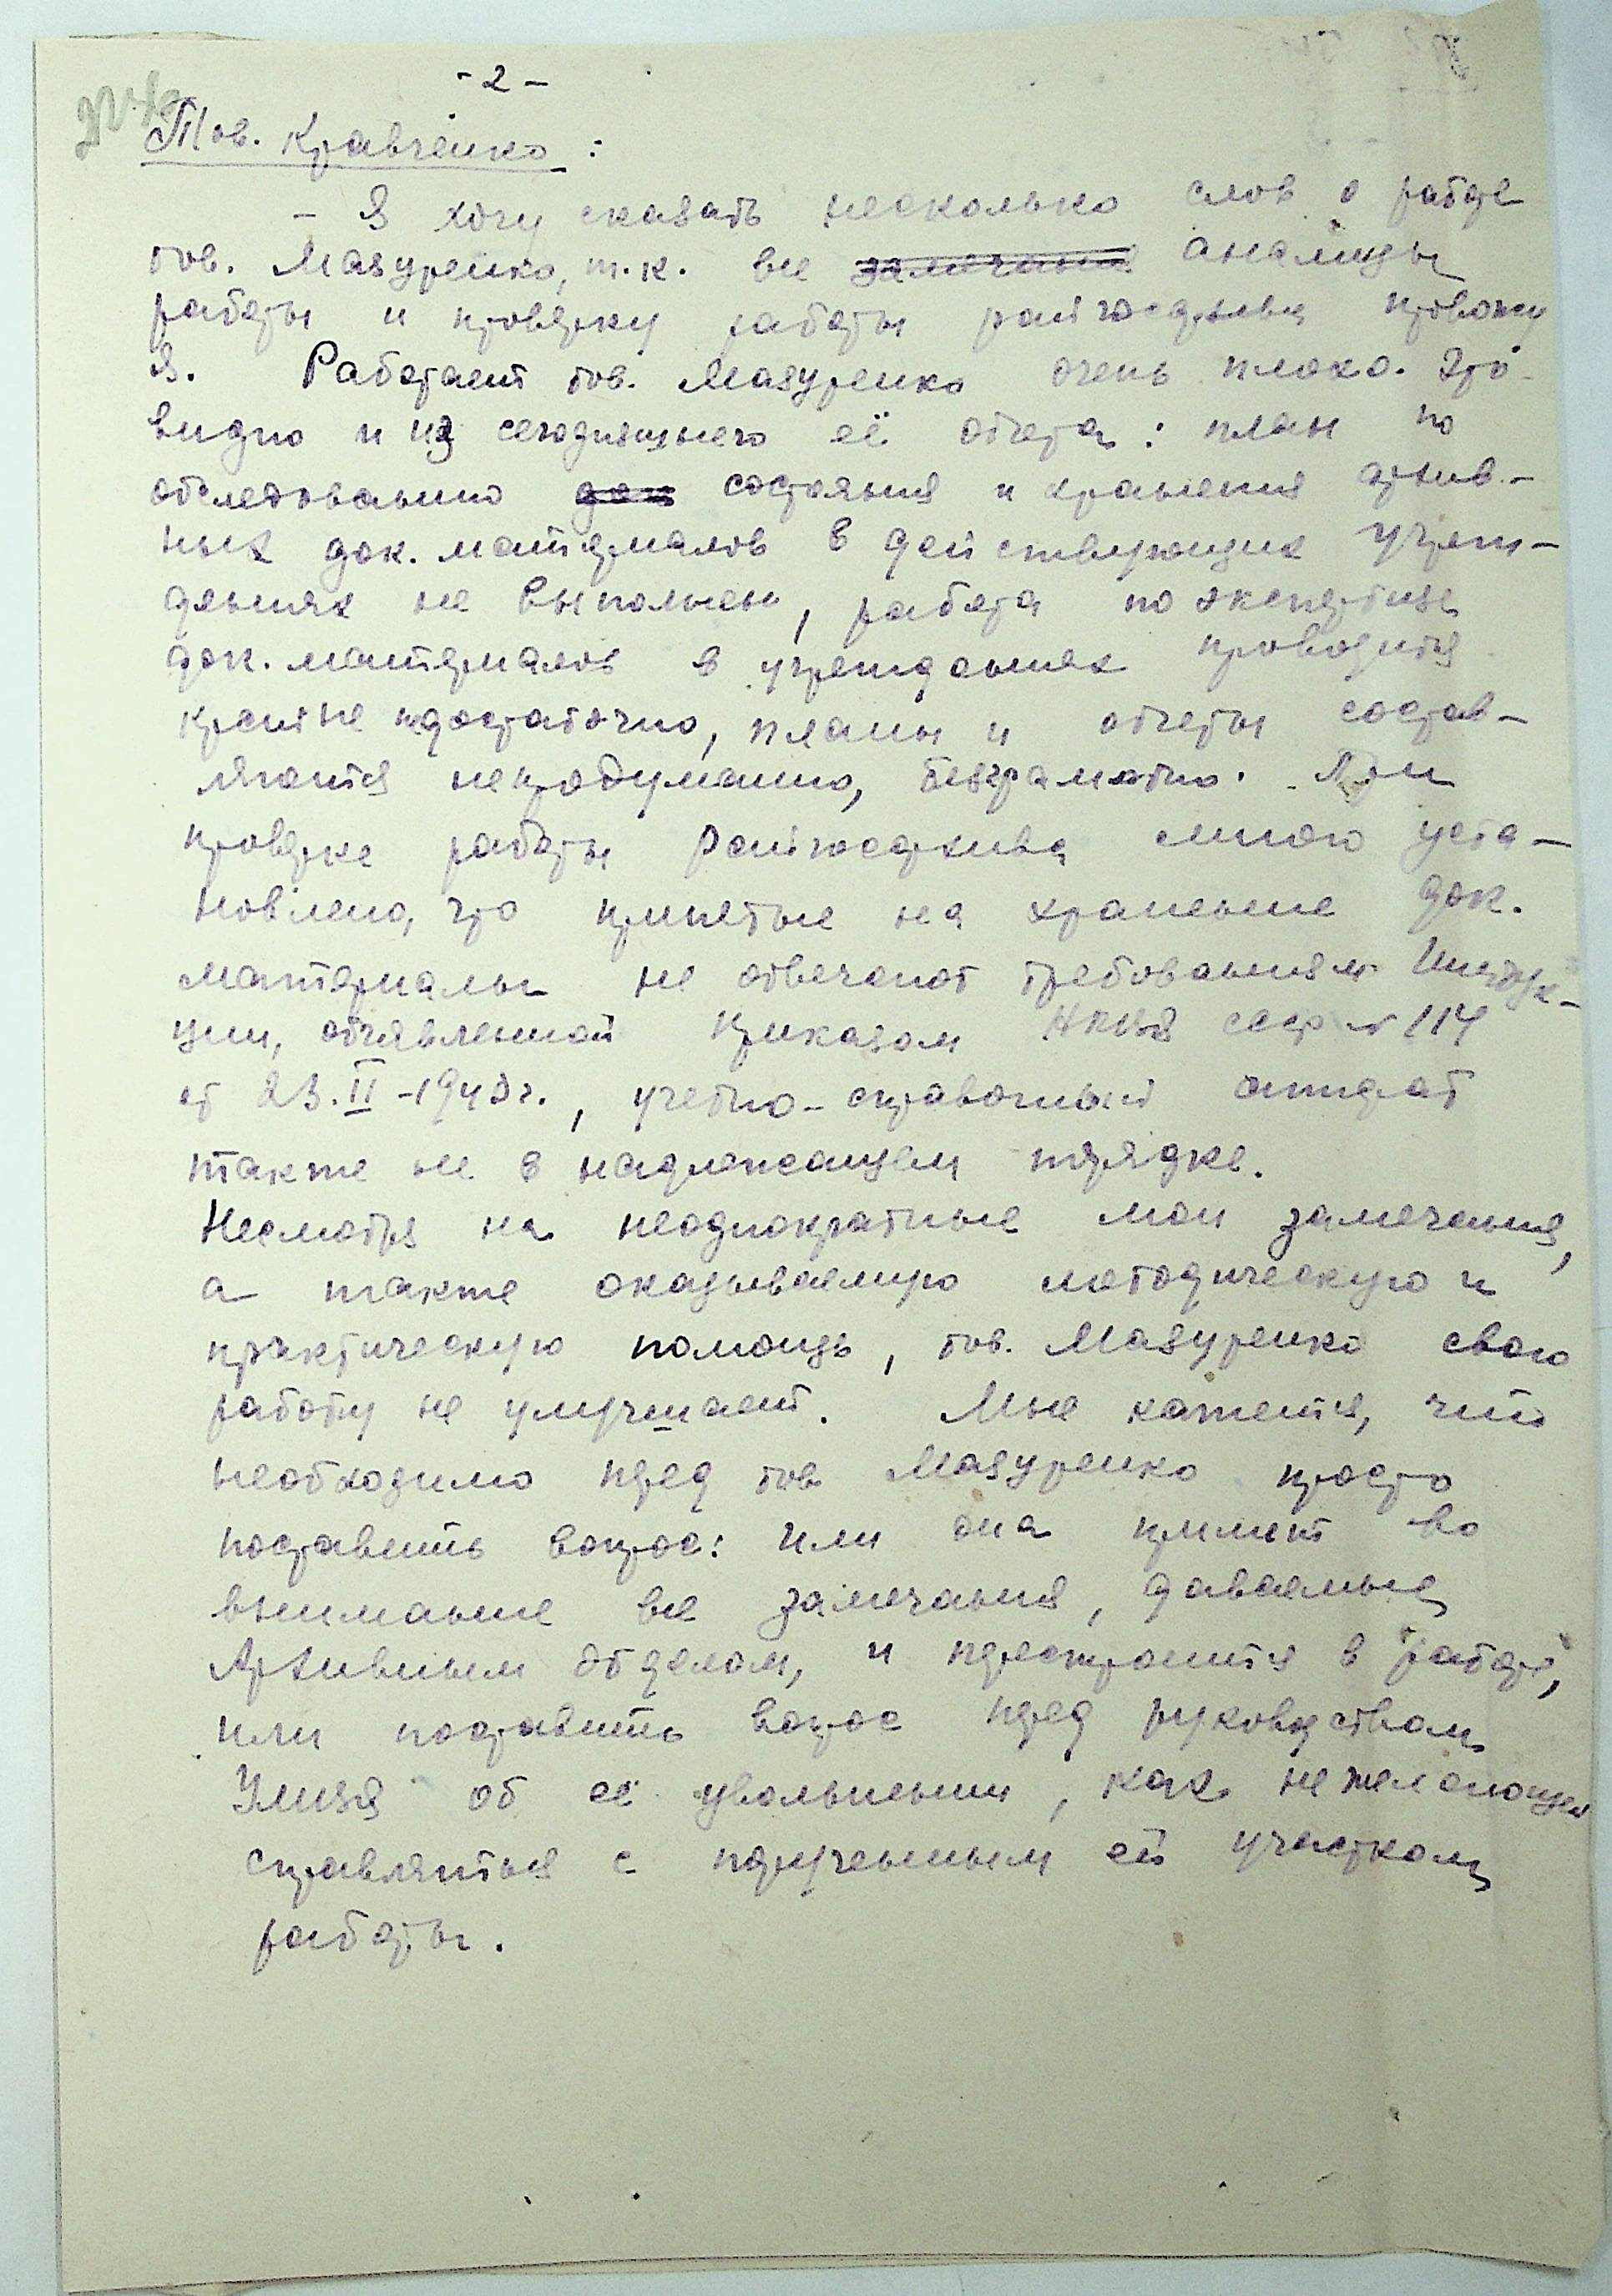 - 2 -
Тов. Кравченко:
- Я хочу сказать несколько слов о работе
тов. Мазуренко, т.к. все замечания анализы
работы и проверку работы райгосархива провожу
я. Работает тов. Мазуренко очень плохо. Это
видно и из сегодняшнего её отчета: план по
обследованию док состояния и хранения архив-
ных док. материалов в действующих учреж-
дениях не выполнен, работа по экспертизе
док. материалов в учреждениях проводится
крайне недостаточно, планы и отчеты состав-
ляются непродуманно, безграмотно. При
проверке работы Райгосархива мною уста-
новлено, что принятые на хранение док.
материалы не отвечают требованиям Инструк-
ции, объявленной приказом НКВД СССР № 114
от 23.II-1943г., учетно-справочный аппарат
также не в надлежащем порядке.
Несмотря на неоднократные мои замечания,
а также оказываемую методическую и
практическую помощь, тов. Мазуренко свою
работу не улучшает. Мне кажется, что
необходимо перед тов. Мазуренко просто
поставить вопрос: или она примет во
внимание все замечания, даваемые
Архивным отделом, и перестроится в работе,
или поставить вопрос перед руководством
УМВД об её увольнении, как не желающей
справляться с порученным ей участком
работы.